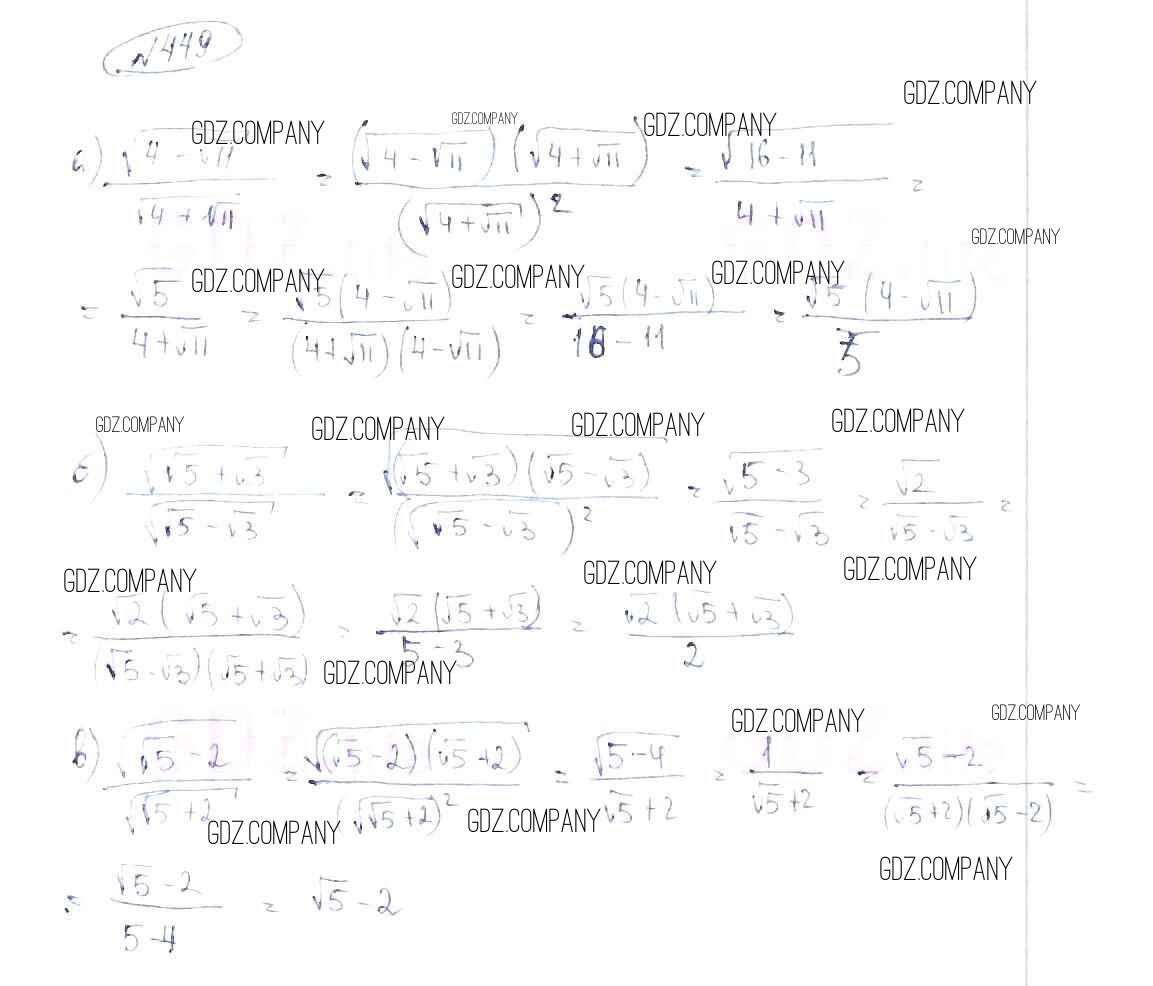 №449
GDZ.COMPANY
GDZ.COMPANY GDZ.COMPANY GDZ.COMPANY
а) √(4 - √11) / √(4 + √11) = (√(4 - √11))(√(4 + √11)) / (√(4 + √11))² = √(16 - 11) / (4 + √11) =
GDZ.COMPANY
GDZ.COMPANY GDZ.COMPANY GDZ.COMPANY
= √5 / (4 + √11) = √5(4 - √11) / (4 + √11)(4 - √11) = √5(4 - √11) / (16 - 11) = √5(4 - √11) / 5
GDZ.COMPANY GDZ.COMPANY GDZ.COMPANY GDZ.COMPANY
б) √(√5 + √3) / √(√5 - √3) = √((√5 + √3)(√5 - √3)) / (√(√5 - √3))² = √(5 - 3) / (√5 - √3) = √2 / (√5 - √3) =
GDZ.COMPANY GDZ.COMPANY GDZ.COMPANY
= √2(√5 + √3) / (√5 - √3)(√5 + √3) = √2(√5 + √3) / (5 - 3) = √2(√5 + √3) / 2
GDZ.COMPANY
GDZ.COMPANY GDZ.COMPANY
в) √(√5 - 2) / √(√5 + 2) = √((√5 - 2)(√5 + 2)) / (√(√5 + 2))² = √(5 - 4) / (√5 + 2) = 1 / (√5 + 2) = (√5 - 2) / (√5 + 2)(√5 - 2) =
GDZ.COMPANY GDZ.COMPANY
GDZ.COMPANY
= (√5 - 2) / (5 - 4) = √5 - 2